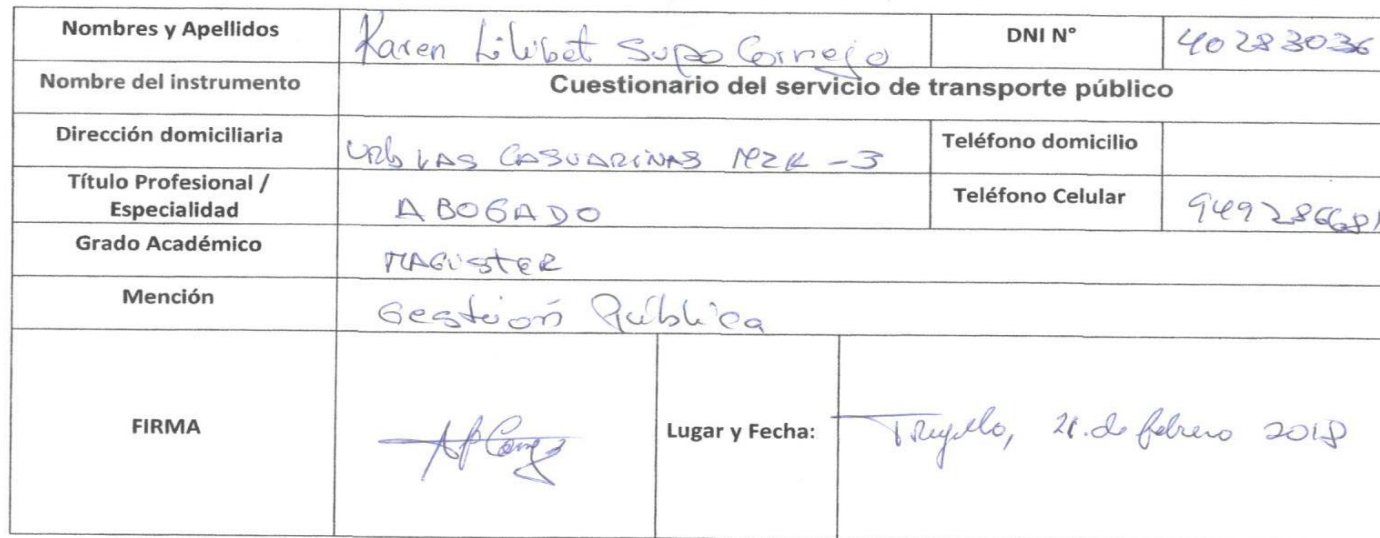 Nombres y Apellidos Karen Lilibet Supo Cornejo DNI N° 40283036
Nombre del instrumento Cuestionario del servicio de transporte público
Dirección domiciliaria URb LAS CASUARINAS MZK -3 Teléfono domicilio
Título Profesional / Especialidad ABOGADO Teléfono Celular 949286681
Grado Académico MAGISTER
Mención Gestión Pública
FIRMA Lugar y Fecha: Trujillo, 21 de febrero 2018